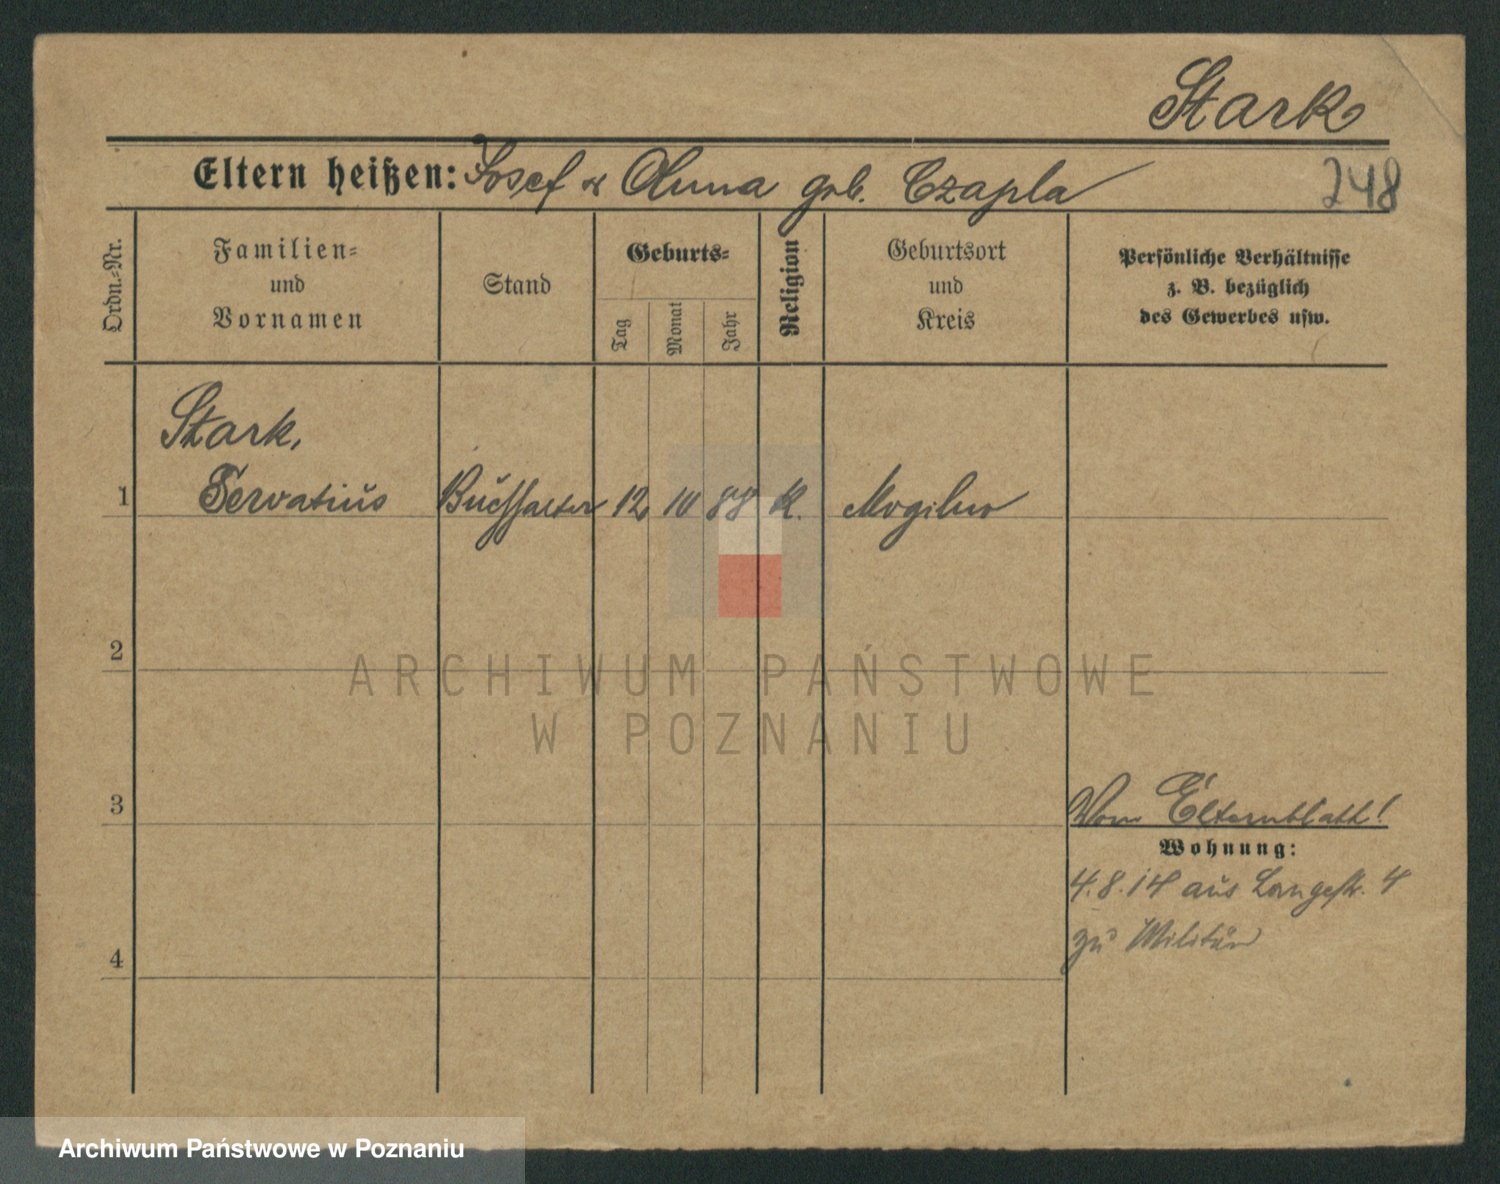 Stark
Eltern heißen: Josef & Anna geb. Czapla
248
Ordn.-Nr.
Familien-
und
Vornamen
Stand
Geburts-
Tag
Monat
Jahr
Religion
Geburtsort
und
Kreis
Persönliche Verhältnisse
z. B. bezüglich
des Gewerbes usw.
Stark,
1 Servatius Buchhalter 12 10 88 K. Mogilno
2
ARCHIWUM PAŃSTWOWE
W POZNANIU
3
Vom Elternblatt!
Wohnung:
4.8.14 aus Langestr. 4
zu Militär
4
Archiwum Państwowe w Poznaniu